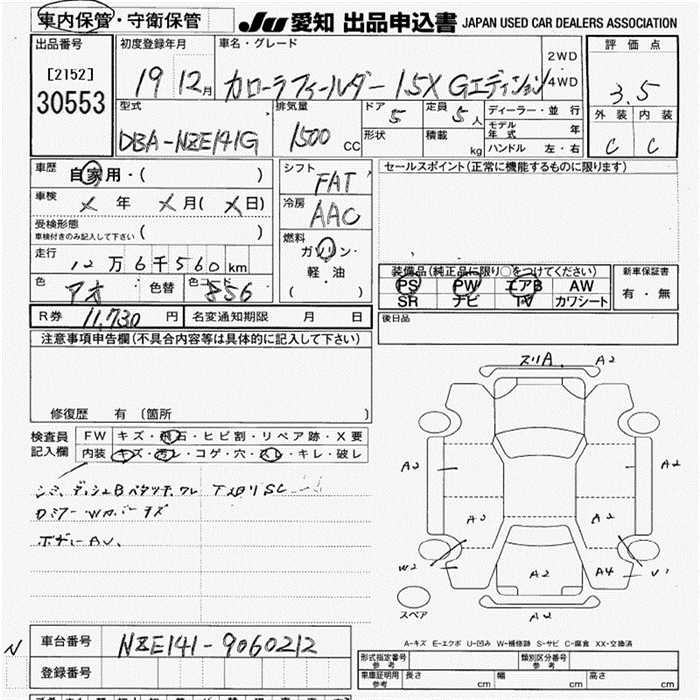 車内保管・守衛保管
JU 愛知 出品申込書 JAPAN USED CAR DEALERS ASSOCIATION
出品番号 [2152] 30553
初度登録年月 19 12月
車名・グレード カローラフィールダー 1.5X Gエディション 2WD 4WD
評価点 3.5
外装 C 内装 C
型式 DBA-NZE141G
排気量 1500 CC
ドア 5 定員 5人
形状 積載 kg
ディーラー・並行
モデル年式 年
ハンドル 左・右
車歴 自家用・( )
車検 × 年 × 月 ( × 日)
受検形態 車検付きのみ記入して下さい ( )
走行 12万6千560km
色 アオ 色替 色コード 8S6
シフト FAT
冷房 AAC
燃料 ガソリン・軽油 ( )
セールスポイント(正常に機能するものに限ります)
装備品(純正品に限り○をつけてください)
PS PW エアB AW
SR ナビ TV カワシート
新車保証書 有・無
R券 11,730円 名変通知期限 月 日
後日品
注意事項申告欄(不具合内容等は具体的に記入して下さい)
修復歴 有(箇所 )
検査員記入欄
FW キズ・飛石・ヒビ割・リペア跡・X要
内装 キズ・汚レ・コゲ・穴・スレ・キレ・破レ
シミ
A2
A2
A2
A2
A2
W2
A2
A4
V1
スペア
A2
A-キズ E-エクボ U-凹み W-補修跡 S-サビ C-腐食 XX-交換済
車台番号 NZE141-9060212
N
登録番号
形式指定番号 参考 類別区分番号 参考
車庫証明用 参考 長さ cm 幅 cm 高さ cm